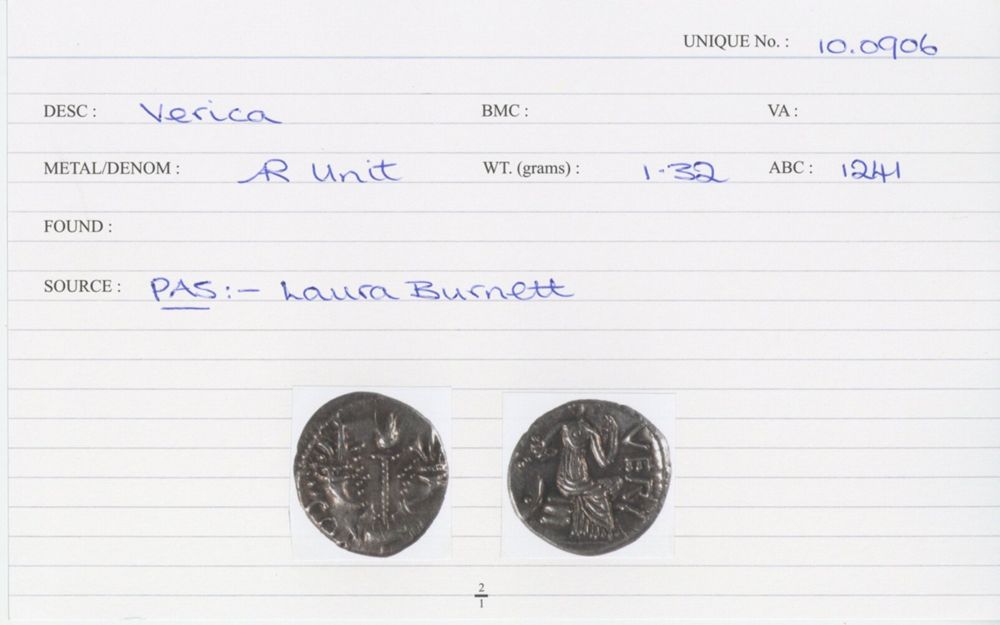 UNIQUE No. : 10.0906
DESC : Verica BMC : VA :
METAL/DENOM : AR Unit WT. (grams) : 1.32 ABC : 1241
FOUND :
SOURCE : PAS:- Laura Burnett
VERI
2
1